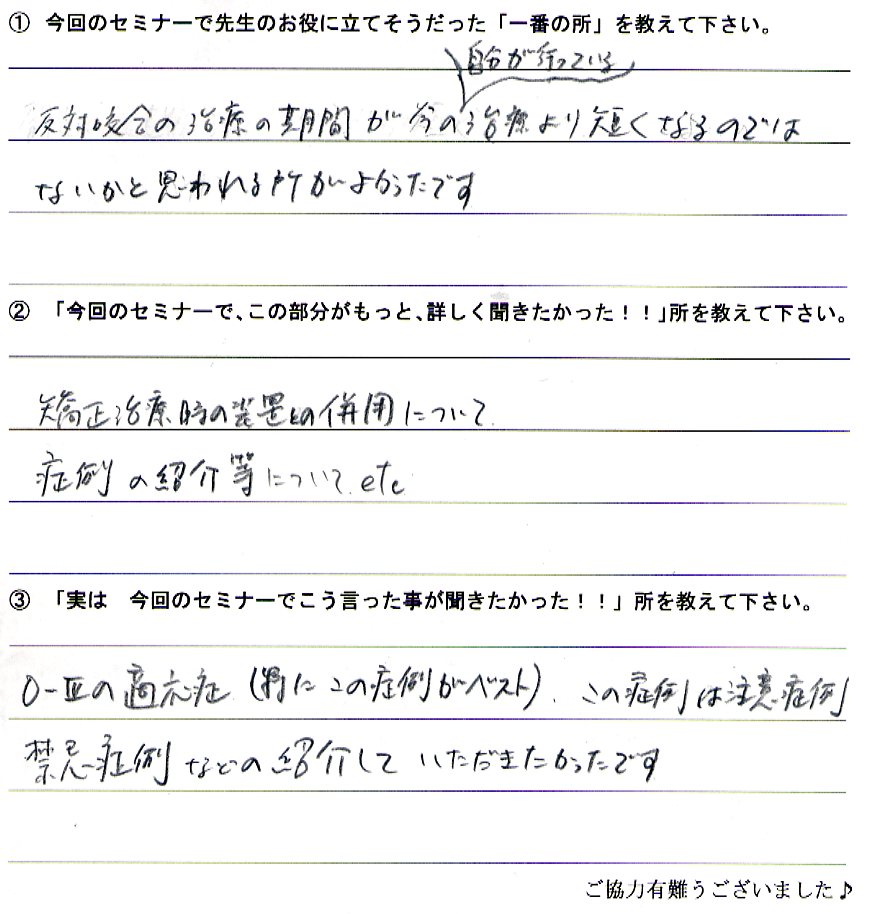 ① 今回のセミナーで先生のお役に立てそうだった「一番の所」を教えて下さい。
自分が行っている
反対咬合の治療の期間が今の治療より短くなるのでは
ないかと思われる所がよかったです
② 「今回のセミナーで、この部分がもっと、詳しく聞きたかった！！」所を教えて下さい。
矯正治療時の装置との併用について
症例の紹介等について.etc
③ 「実は　今回のセミナーでこう言った事が聞きたかった！！」所を教えて下さい。
の適応症（特にこの症例がベスト）．この症例は注意症例
禁忌症例などの紹介していただきたかったです
ご協力有難うございました♪